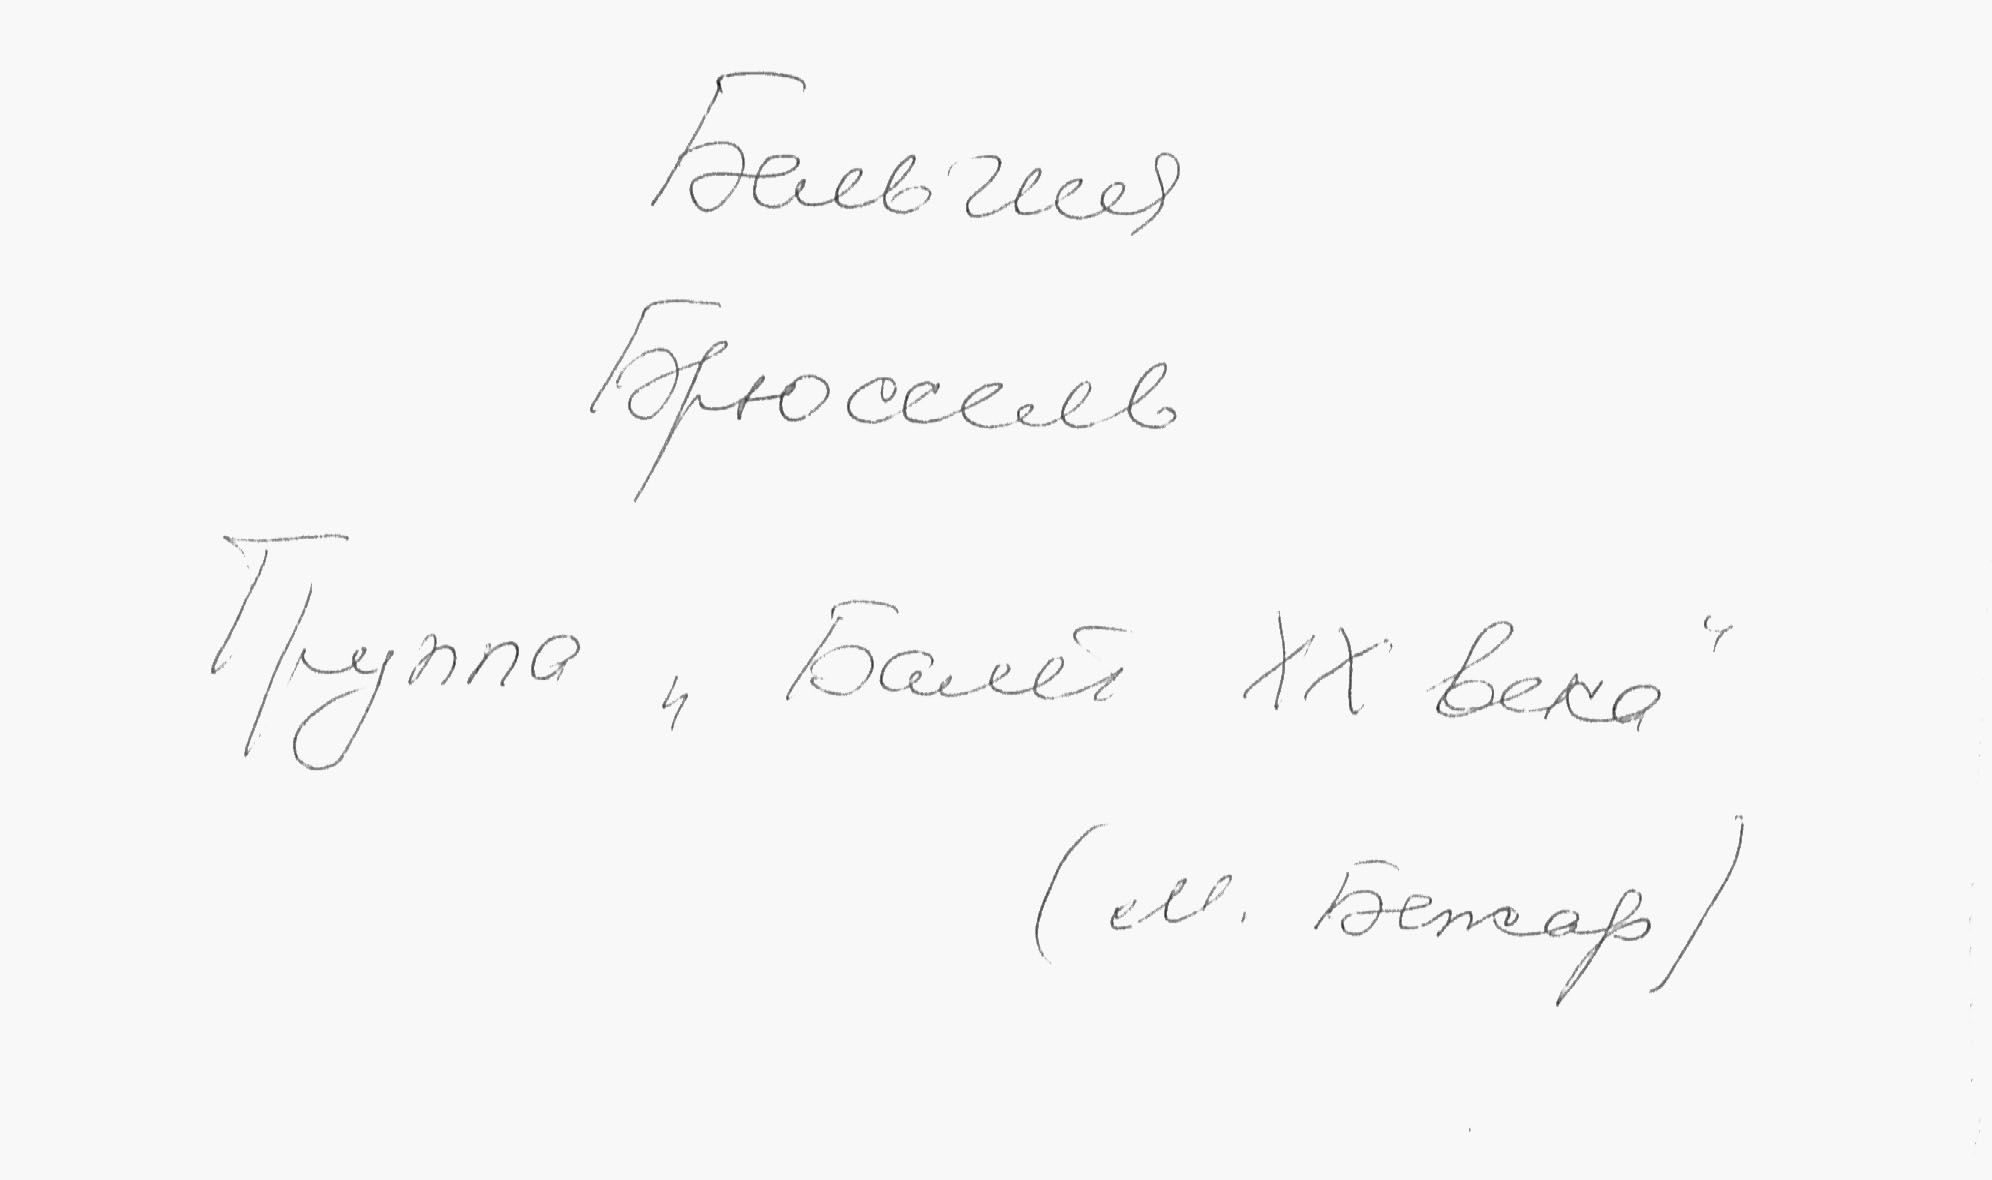 Бельгия
Брюссель
Группа „Балет XX века“
(М. Бежар)